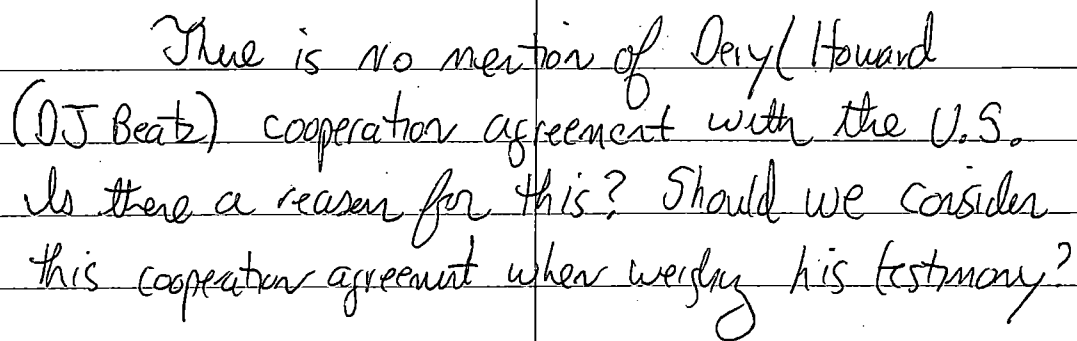 There is No mention of Deryl Howard
(DJ Beatz) cooperation agreement with the U.S.
Is there a reason for this? Should we consider
this cooperation agreement when weighing his testimony?